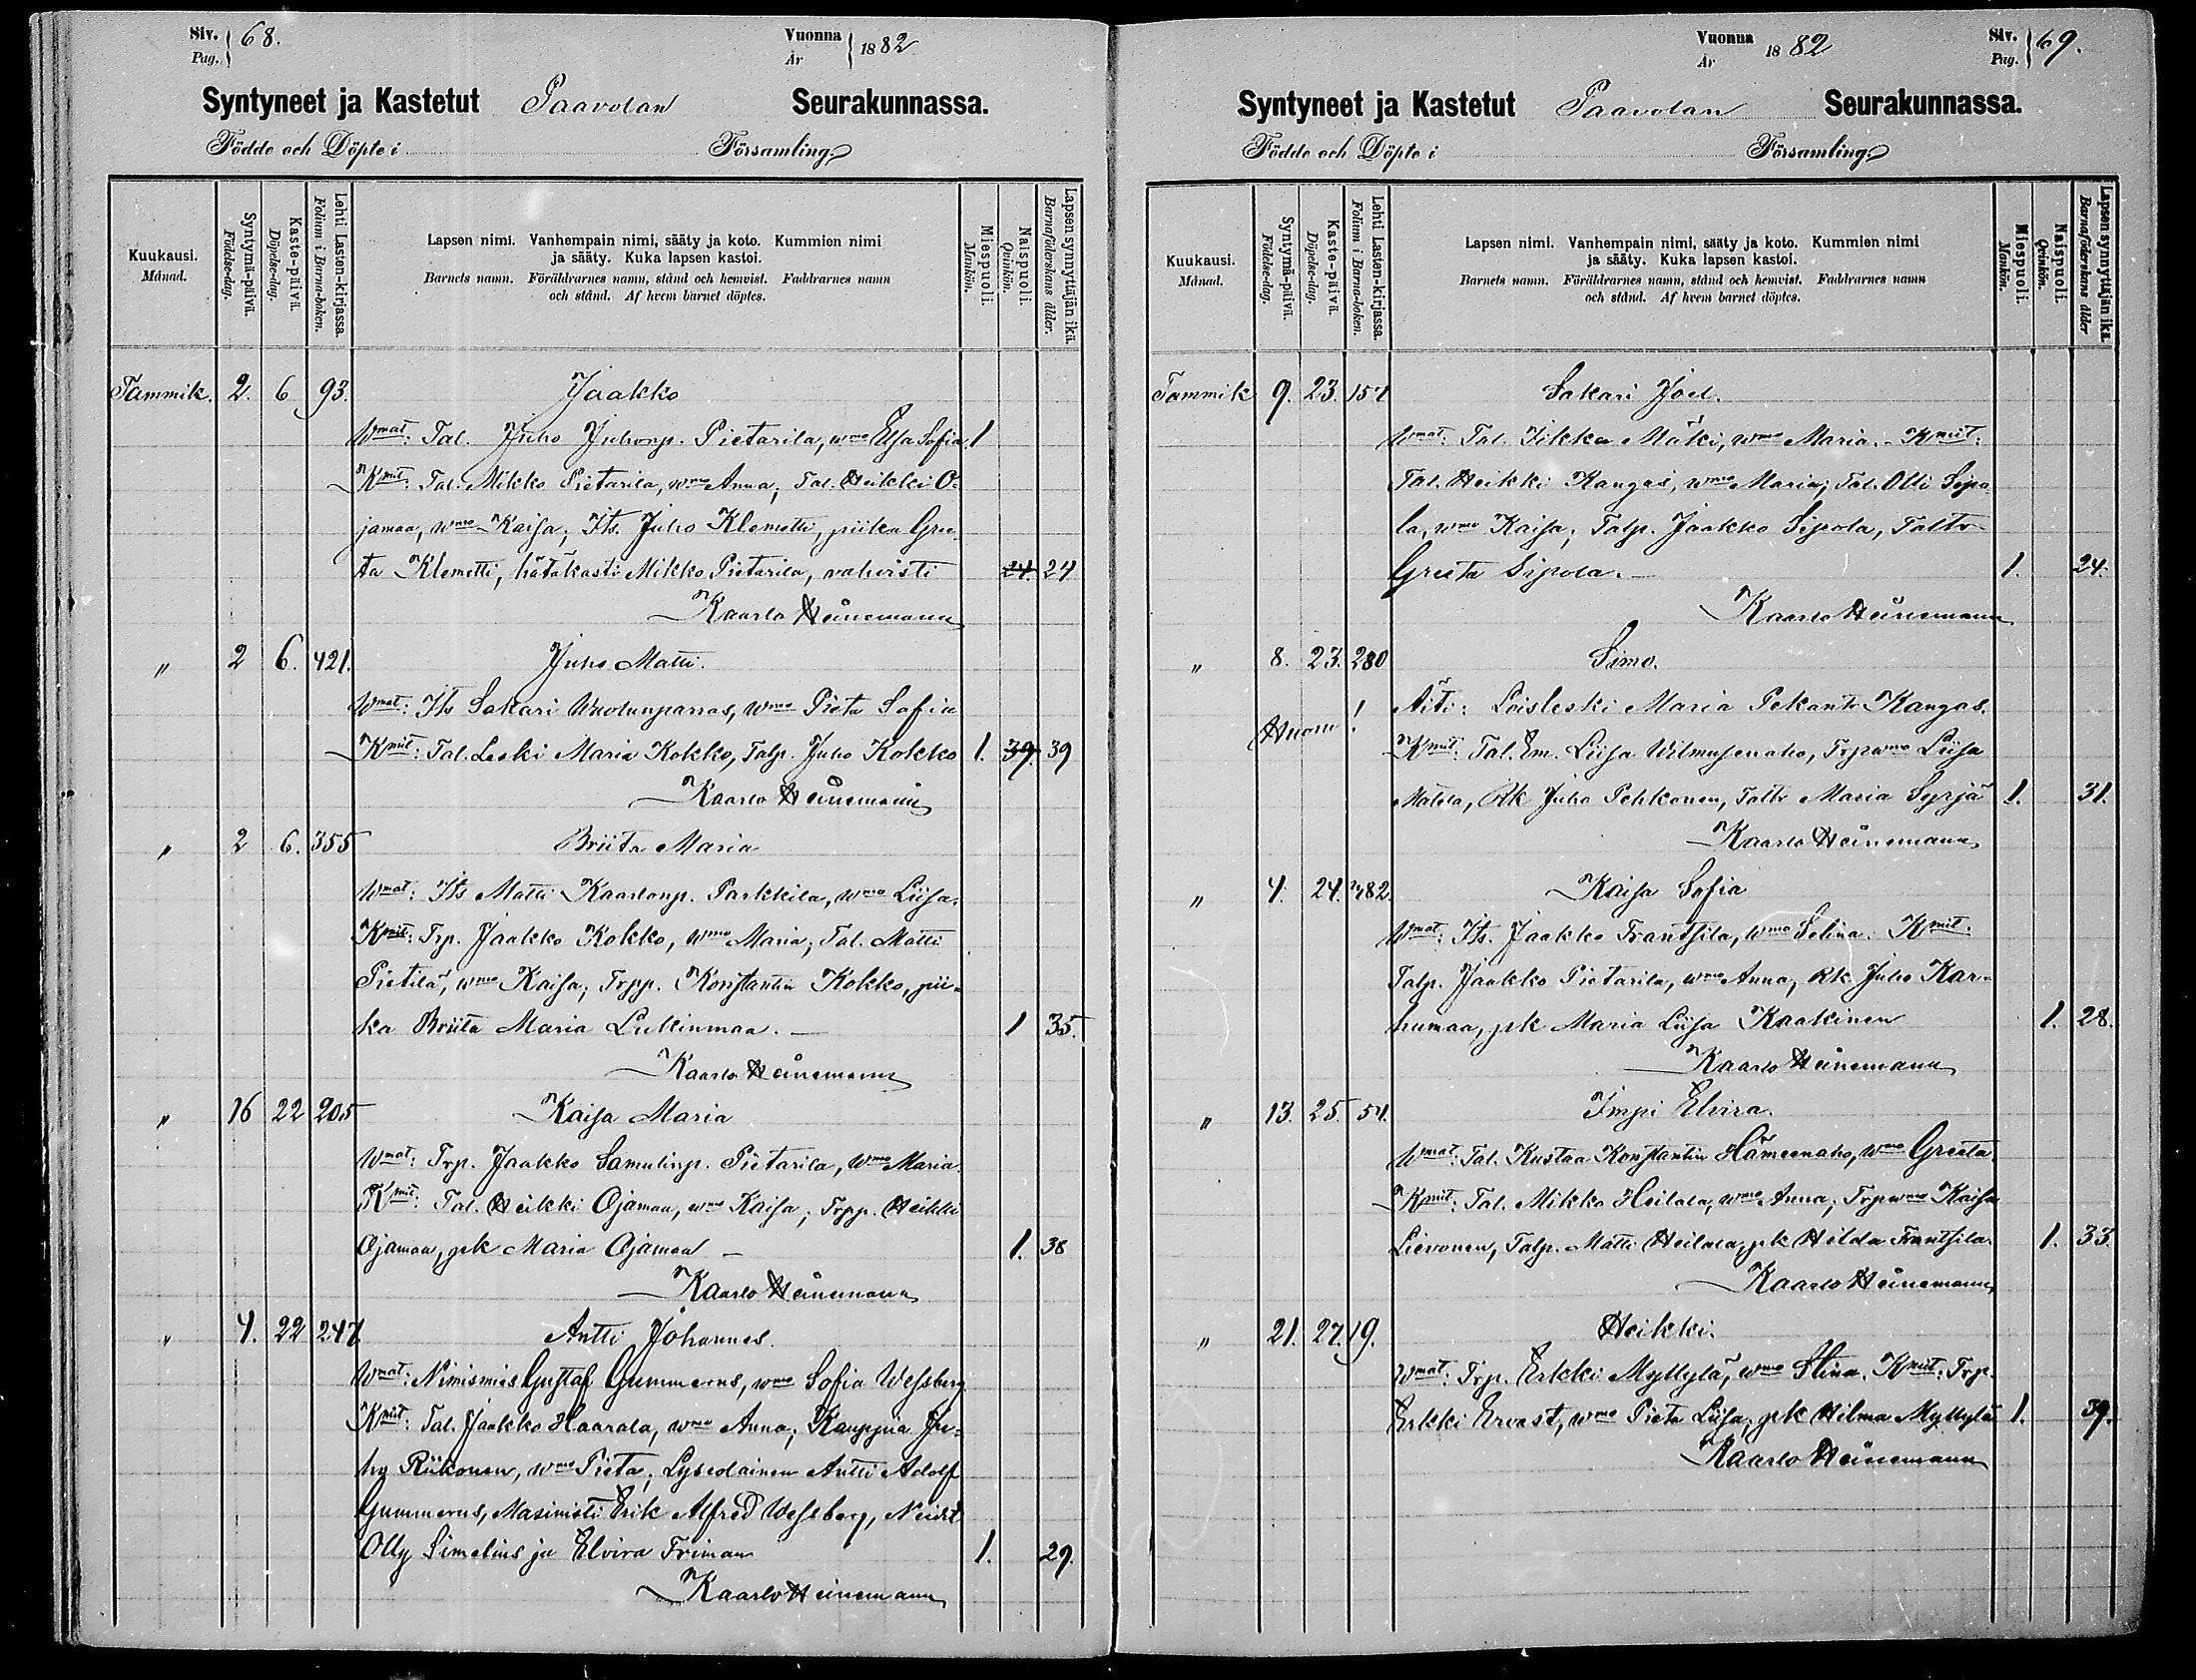 Siv. 68.
Pag.
Vuonna 1882
År
Syntyneet ja Kastetut Paavolan Seurakunnassa.
Födde och Döpte i Församling.
Kuukausi.
Månad.
Syntymä-päivä.
Födelse-dag.
Kaste-päivä.
Döpelse-dag.
Lehti Lasten-kirjassa.
Folium i Barna-boken.
Lapsen nimi. Vanhempain nimi, sääty ja koto. Kummien nimi
ja sääty. Kuka lapsen kastoi.
Barnets namn. Föräldrarnes namn, stånd och hemvist. Faddrarnes namn
och stånd. Af hvem barnet döptes.
Miespuoli.
Mankön.
Naispuoli.
Qvinkön.
Lapsen synnyttäjän ikä.
Barnaföderskans ålder.
Tammik. 2. 6 93. Jaakko
Wmat: Tal. Juho Juhonp. Pietarila, wmo Elsa Sofia 1
Kmit: Tal. Mikko Pietarila, wmo Anna; Tal. Heikki O-
jamaa, wmo Kaisa; Its. Juho Klemetti, piika Gree-
ta Klemetti, hätäkasti Mikko Pietarila, vahvisti 24. 24
Kaarlo Heinemann
" 2 6. 421. Juho Matti.
Wmat: Its Sakari Wuolunparras, wmo Pieta Sofia
Kmit: Tal. Leski Maria Kokko, Talp. Juho Kokko 1. 39. 39
Kaarlo Heinemann
" 2 6. 355 Briita Maria
Wmat: Its Matti Kaarlonp. Parkkila, wmo Liisa.
Kmit: Trp. Jaakko Kokko, wmo Maria; Tal. Matti
Pietilä, wmo Kaisa; Trpp. Konstantin Kokko, pii-
ka Briita Maria Lukinmaa. 1 35.
Kaarlo Heinemann
" 16 22 205 Kaisa Maria
Wmat: Trp. Jaakko Samulinp. Pietarila, wmo Maria.
Kmit: Tal. Heikki Ojamaa, wmo Kaisa; Trpp. Heikki
Ojamaa, prk Maria Ojamaa 1. 38
Kaarlo Heinemann
" 4. 22 247 Antti Johannes.
Wmat: Nimismies Gustaf Gummerus, wmo Sofia Wessberg
Kmit: Tal. Jaakko Haarala, wmo Anna; Kauppia Ju-
ho Riikonen, wmo Pieta; Lyseolainen Antti Adolf
Gummerus, Masinisti Erik Alfred Wessberg, Neidit
Olly Simelius ja Elvira Friman 1. 29.
Kaarlo Heinemann
Vuonna 1882
År
Siv. 69.
Pag.
Syntyneet ja Kastetut Paavolan Seurakunnassa.
Födde och Döpte i Församling.
Kuukausi.
Månad.
Syntymä-päivä.
Födelse-dag.
Kaste-päivä.
Döpelse-dag.
Lehti Lasten-kirjassa.
Folium i Barna-boken.
Lapsen nimi. Vanhempain nimi, sääty ja koto. Kummien nimi
ja sääty. Kuka lapsen kastoi.
Barnets namn. Föräldrarnes namn, stånd och hemvist. Faddrarnes namn
och stånd. Af hvem barnet döptes.
Miespuoli.
Mankön.
Naispuoli.
Qvinkön.
Lapsen synnyttäjän ikä.
Barnaföderskans ålder
Tammik 9. 23. 154 Sakari Joel.
Wmat: Tal. Iikka Mäki, wmo Maria. Kmit:
Tal. Heikki Kangas, wmo Maria; Tal. Olli Sipo
la, wmo Kaisa; Talp. Jaakko Sipola, Taltr
Greeta Sipola. 1. 24.
Kaarlo Heinemann
" 8. 23. 280 Simo.
Huom! Äiti: Loisleski Maria Pekantr Kangas.
Kmit: Tal. Em. Liisa Wilmusenaho, Trpwmo Liisa
Matela, Rk Juho Pehkonen, Taltr Maria Syrjä 1. 31.
Kaarlo Heinemann
" 4. 24. 482. Kaisa Sofia
Wmat: Its. Jaakko Frantsila, wmo Selina. Kmit:
Talp. Jaakko Pietarila, wmo Anna, Rk Juho Kar-
humaa, prk Maria Liisa Kaakinen 1. 28.
Kaarlo Heinemann
" 13. 25. 54. Impi Elvira.
Wmat: Tal. Kustaa Konstantin Hämeenaho, wmo Greeta.
Kmit: Tal. Mikko Heilala, wmo Anna; Trpwmo Kaisa
Lievonen, Talp. Matti Heilala, prk Hilda Frantsila. 1. 33.
Kaarlo Heinemann
" 21. 27. 19. Heikki.
Wmat: Trp. Erkki Myllylä, wmo Stina. Kmit: Trp.
Erkki Ervast, wmo Pieta Liisa, prk Hilma Myllylä 1. 39.
Kaarlo Heinemann